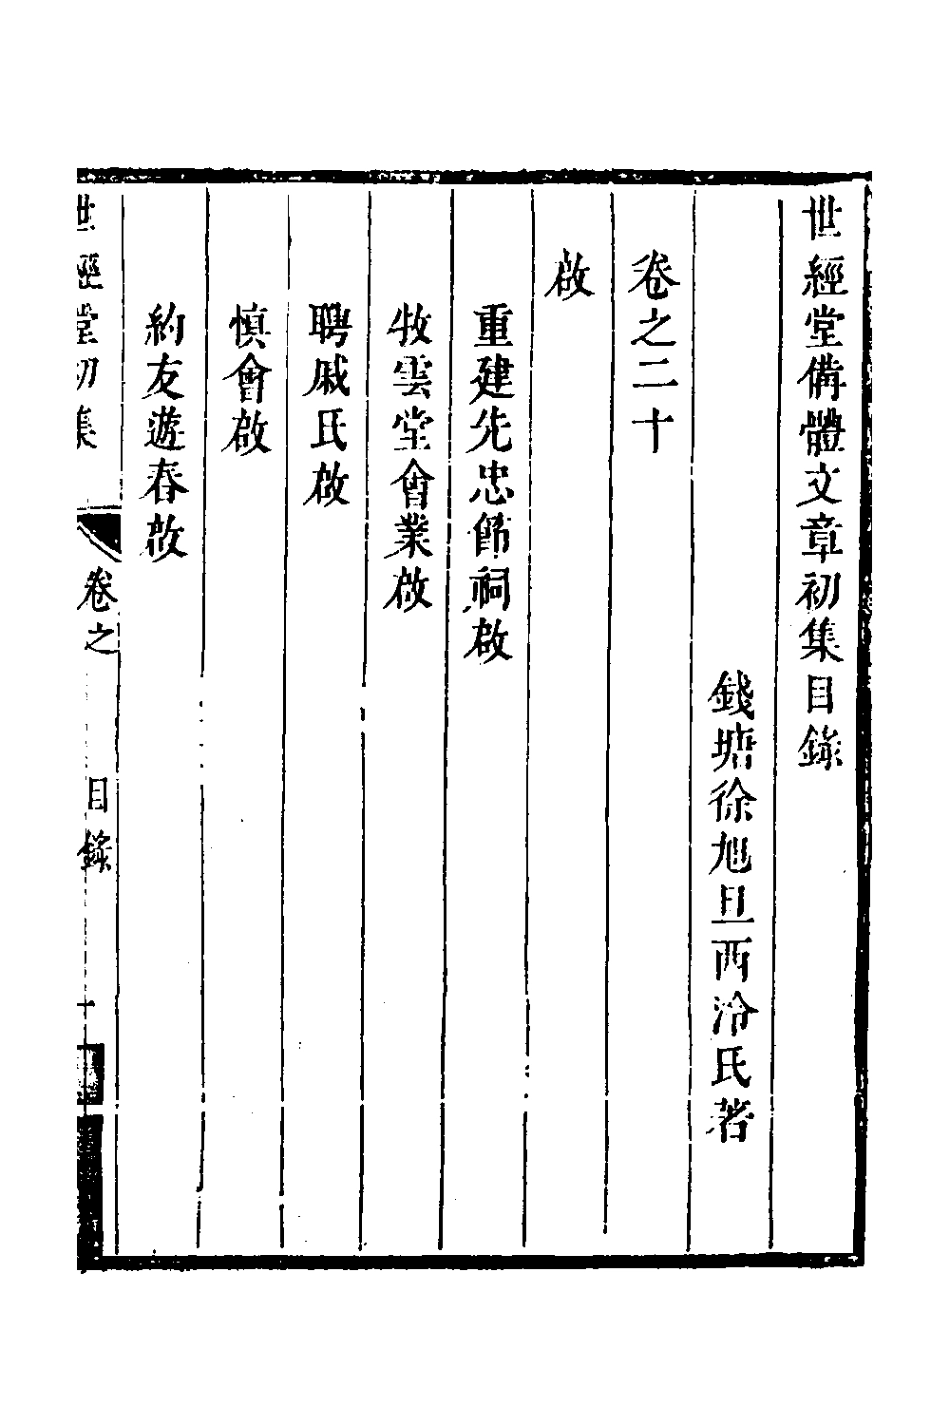 世經堂備體文章初集目錄
錢塘徐旭旦西泠氏著
卷之二十
啟
重建先忠節祠啟
牧雲堂會業啟
聘戚氏啟
慎會啟
約友遊春啟
世經堂初集
卷之
目錄